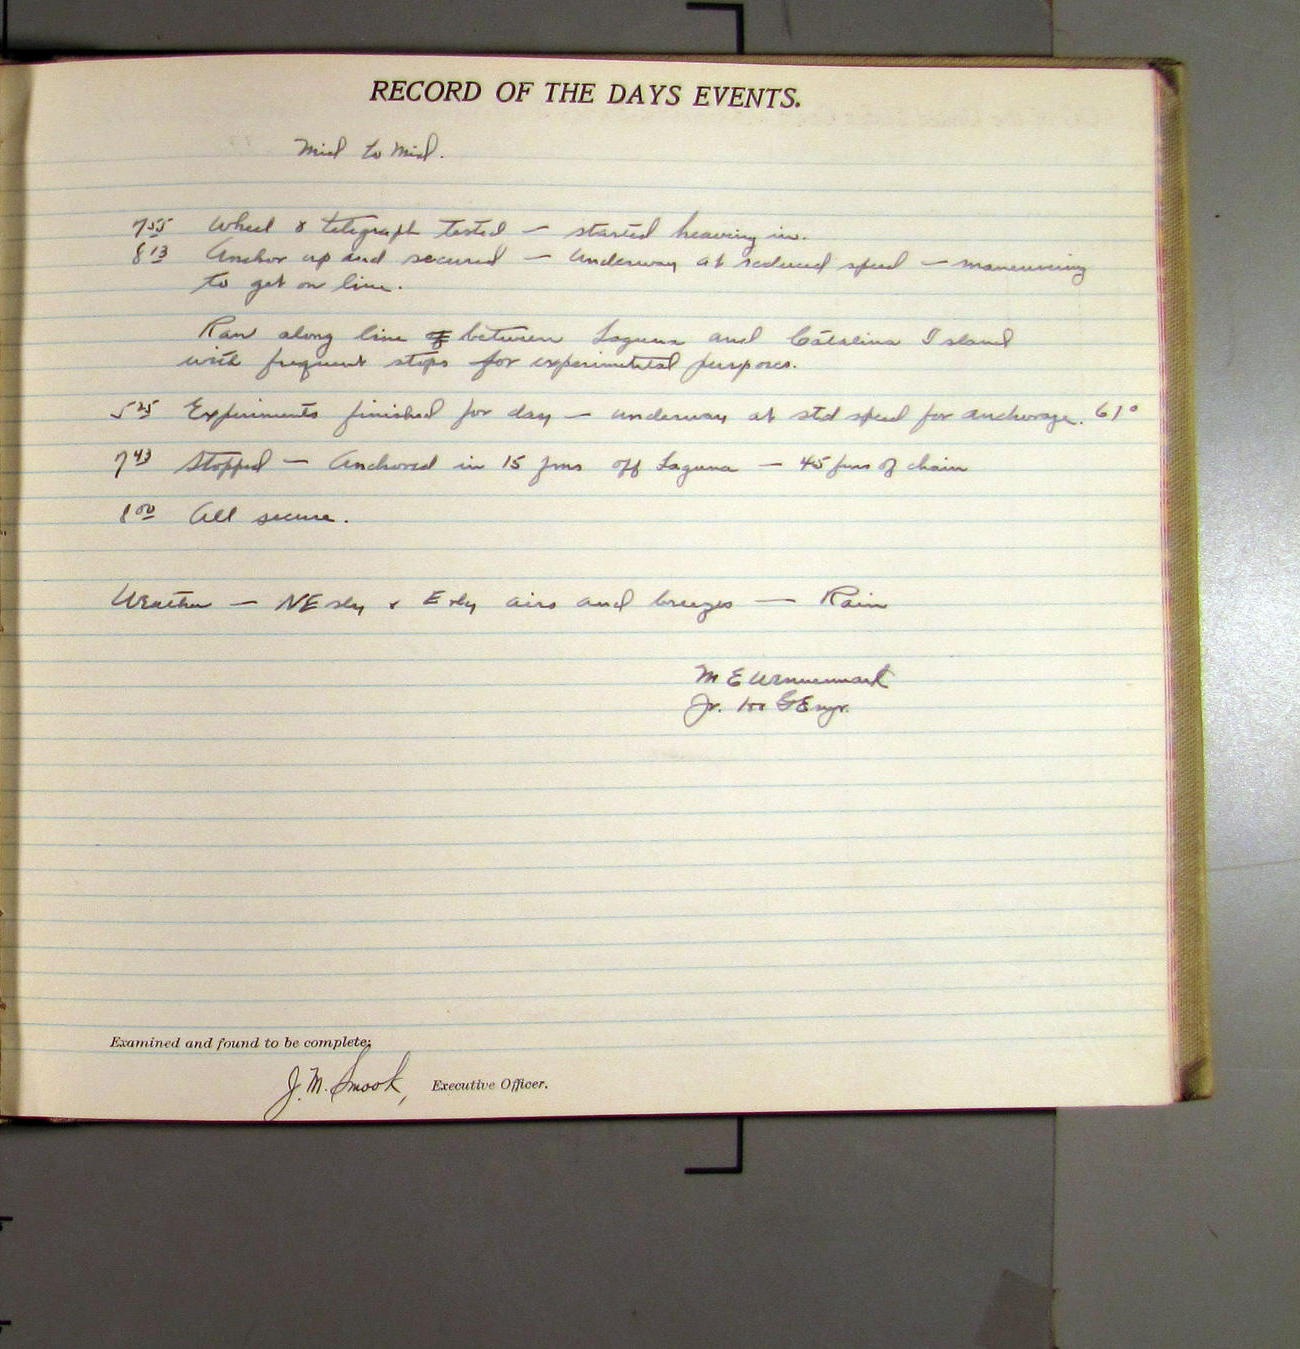 RECORD OF THE DAYS EVENTS.
Mid to Mid.
7 55 Wheel & telegraph tested — started heaving in.
8 13 Anchor up and secured — Underway at reduced speed — maneuvering
to get on line.
Ran along line of between Laguna and Catalina Island
with frequent stops for experimental purposes.
5 25 Experiments finished for day — underway at std speed for anchorage. 61°
7 43 Stopped — Anchored in 15 fms off Laguna — 45 fms of chain
8 00 All secure.
Weather — NE'rly & E'rly airs and breezes — Rain
M E Wennermark
Jr. H & G Engr.
Examined and found to be complete;
J. M. Smook, Executive Officer.